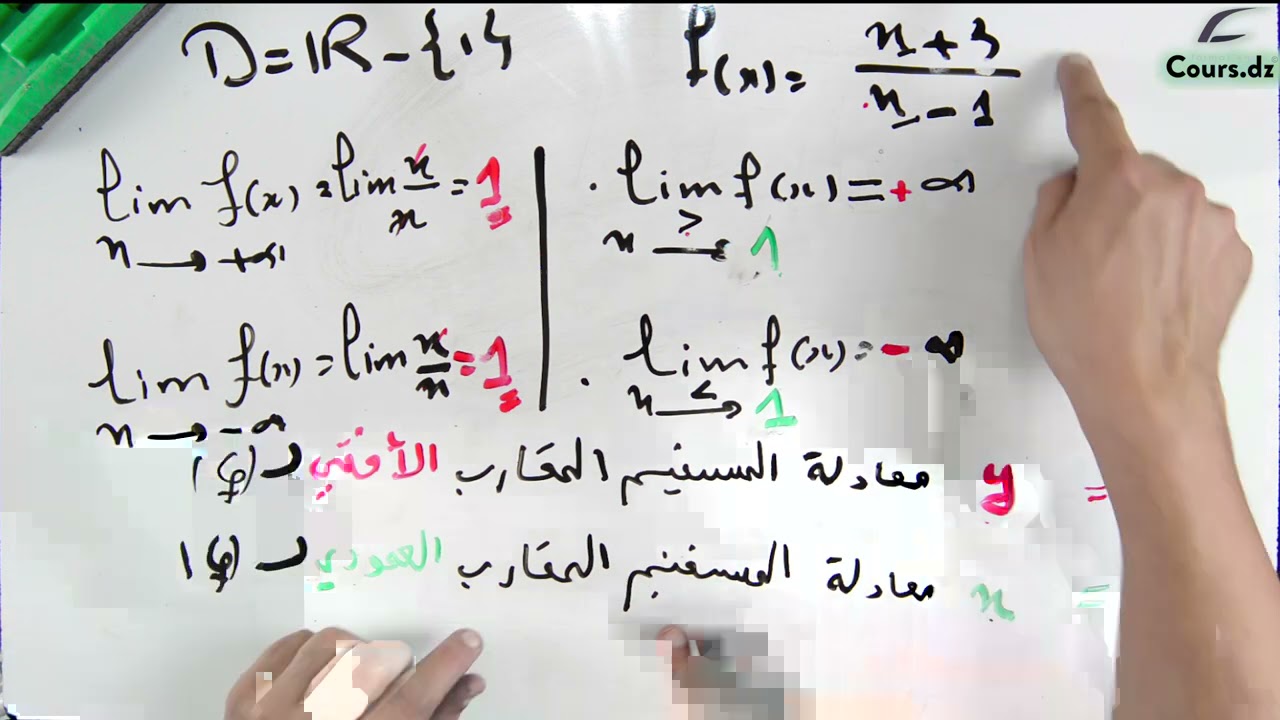 D = IR - {1}
f(x) = x + 3 / x - 1
Cours.dz
lim f(x) = lim x/x = 1
x → +∞
lim f(x) = + ∞
x → > 1
lim f(x) = lim x/x = 1
x → -∞
lim f(x) = - ∞
x → < 1
y = معادلة المستقيم المقارب الأفقي لـ
x = معادلة المستقيم المقارب العمودي لـ